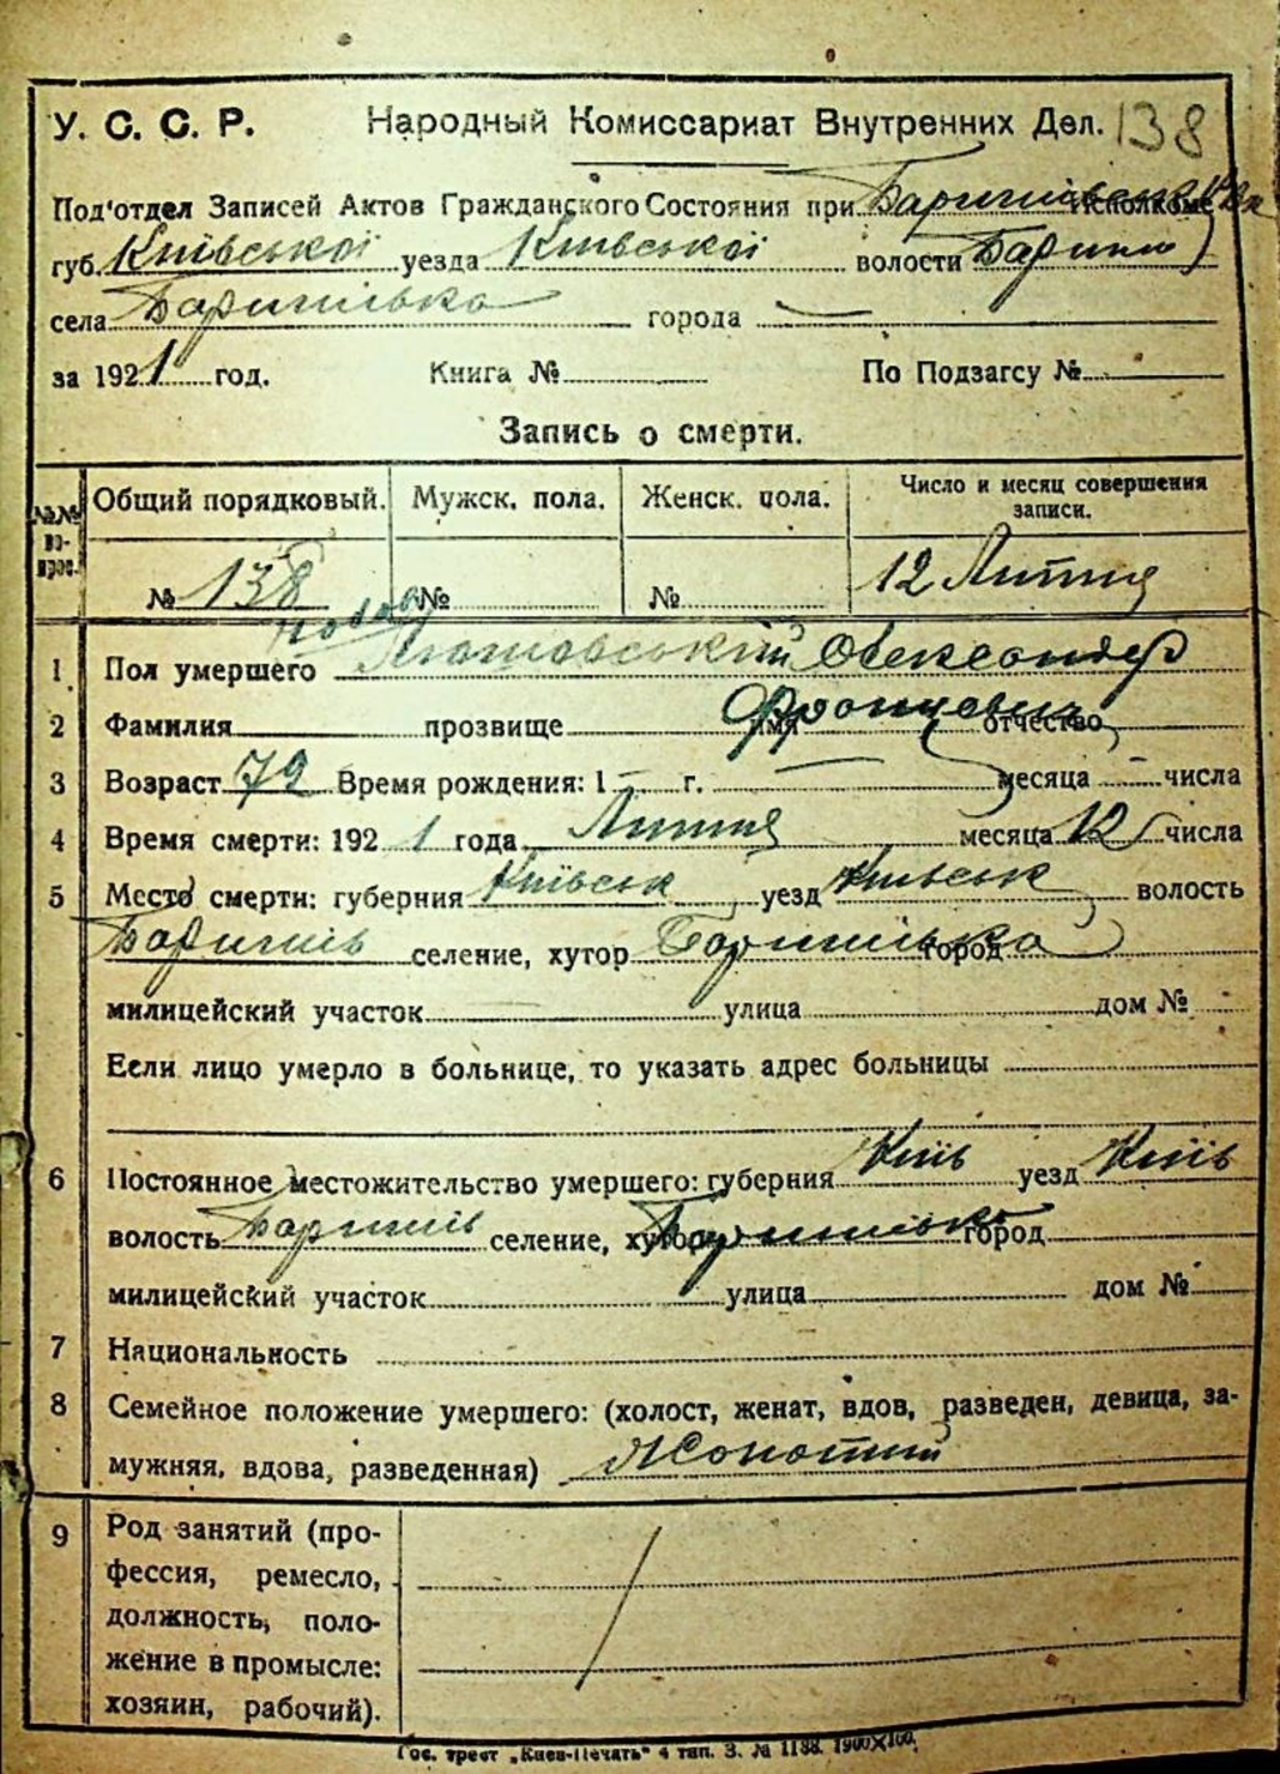 У. С. С. Р. Народный Комиссариат Внутренних Дел. 138
Под'отдел Записей Актов Гражданского Состояния при Исполкоме
губ. Київської уезда Київської волости Бариш
села Баришівка города
за 1921 год. Книга № По Подзагсу №
Запись о смерти.
№№ во-прос. Общий порядковый. Мужск. пола. Женск. пола. Число и месяц совершения записи.
№ 138 № № 12 Липня
1 Пол умершего Олександер
2 Фамилия прозвище имя отчество Францевич
3 Возраст 79 Время рождения: 1 г. месяца числа
4 Время смерти: 1921 года Липня месяца 12 числа
5 Место смерти: губерния Київськ уезд Київськ волость
Баришів селение, хутор Баришівка город
милицейский участок улица дом №
Если лицо умерло в больнице, то указать адрес больницы
6 Постоянное местожительство умершего: губерния Київ уезд Київ
волость Баришів селение, хутор Баришівка город
милицейский участок улица дом №
7 Национальность
8 Семейное положение умершего: (холост, женат, вдов, разведен, девица, за-
мужняя, вдова, разведенная) Жонотий
9 Род занятий (про-
фессия, ремесло,
должность, поло-
жение в промысле:
хозяин, рабочий).
Гос. трест „Киев-Печать" 4 тип. З. № 1188. 1900×100.